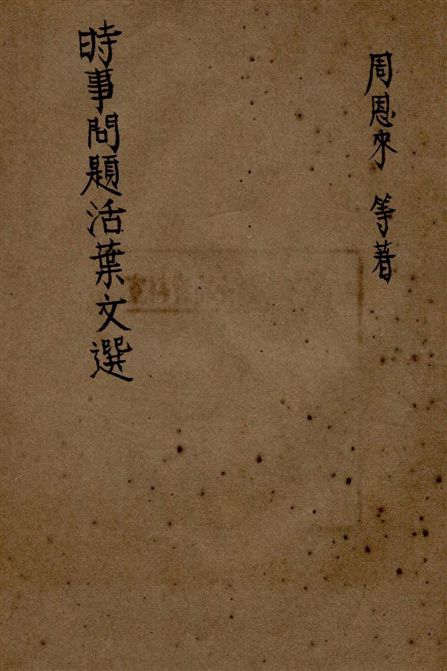 周恩來 等著
時事問題活葉文選